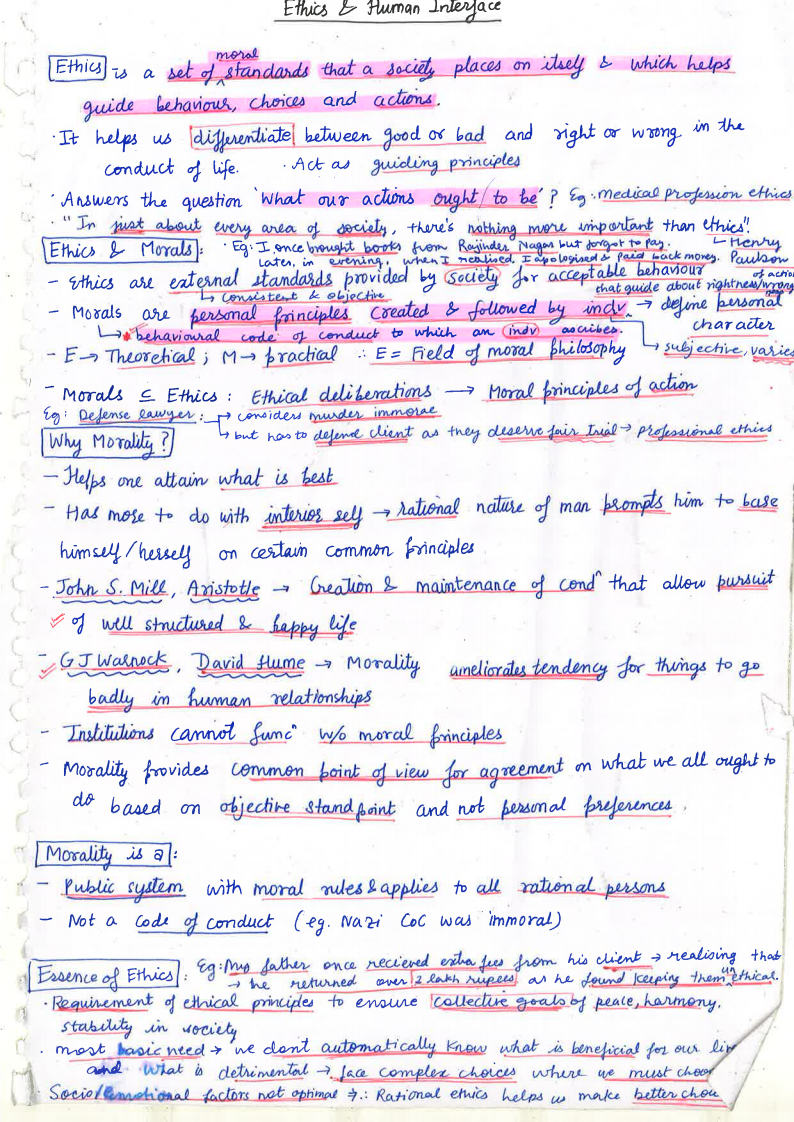 Ethics & Human Interface
Ethics is a set of moral standards that a society places on itself & which helps
guide behaviour, choices and actions.
· It helps us differentiate between good or bad and right or wrong in the
conduct of life. · Act as guiding principles
· Answers the question 'What our actions ought / to be'? Eg :- medical profession ethics
· "In just about every area of society, there's nothing more important than ethics"!
↳ Henry Paulson
Ethics & Morals : · Eg: I once brought books from Rajinder Nagar but forgot to pay.
Later, in evening, when I realised, I apologised & paid back money.
- Ethics are external standards provided by society for acceptable behaviour
↳ consistent & objective
that guide about rightness/wrongness of action
- Morals are personal principles created & followed by indv → define personal character
↳ * behavioural code of conduct to which an indv ascibes.
↳ subjective, varies
- E → Theoretical ; M → practical ∴ E = Field of moral philosophy
- Morals ⊆ Ethics : Ethical deliberations → Moral principles of action
Eg: Defense lawyer : → considers murder immorae
↳ but has to defend client as they deserve fair trial → professional ethics
Why Morality ?
- Helps one attain what is best
- Has more to do with interior self → rational nature of man prompts him to base
himself/herself on certain common principles
- John S. Mill, Aristotle → Creation & maintenance of condⁿ that allow pursuit
of well structured & happy life
- G J Warnock, David Hume → Morality ameliorates tendency for things to go
badly in human relationships
- Institutions cannot funcⁿ w/o moral principles
- Morality provides common point of view for agreement on what we all ought to
do based on objective stand point and not personal preferences.
Morality is a :
- Public system with moral rules & applies to all rational persons
- Not a code of conduct (eg. Nazi CoC was immoral)
Essence of Ethics : Eg: My father once recieved extra fees from his client → realising that
→ he returned over 2 lakh rupees as he found keeping them unethical.
· Requirement of ethical principles to ensure collective goals of peace, harmony,
stability in society
· most basic need → we dont automatically know what is beneficial for our
and what is detrimental → face complex choices where we must
· Socio/emotional factors not optimal → ∴ Rational ethics helps us make better